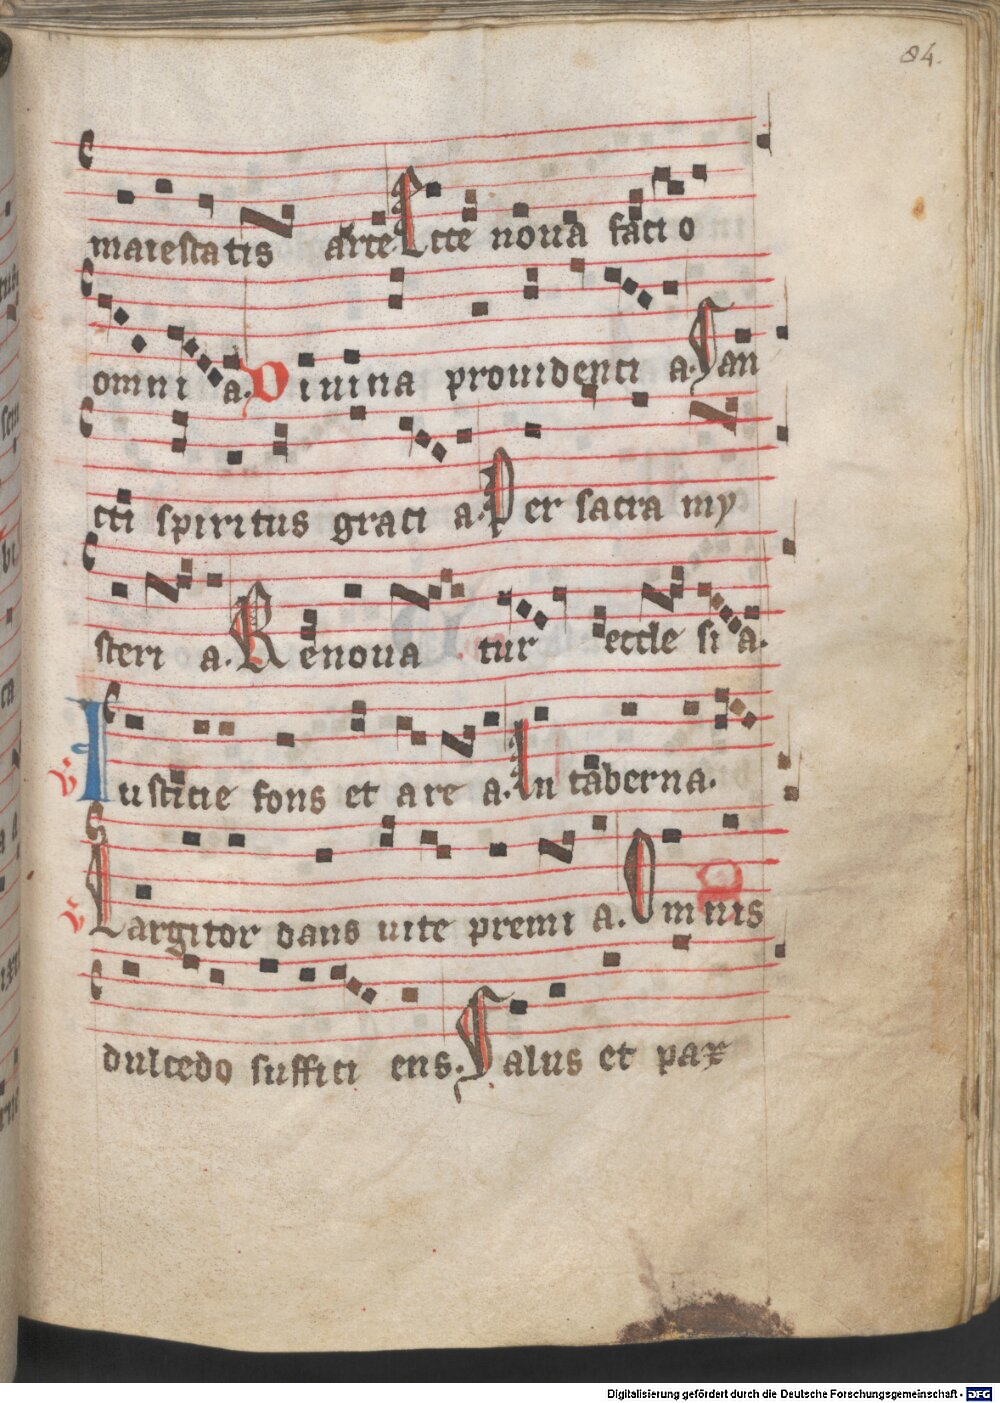 84.
maiestatis arte Ecce noua facio
omni a. Diuina prouidenti a. San
cti spiritus graci a. Per sacra my
steri a. Renoua tur eccle si a.
v Iusticie fons et are a. In taberna.
v Largitor dans uite premi a. Omnis
dulcedo suffici ens. Salus et pax
Digitalisierung gefördert durch die Deutsche Forschungsgemeinschaft - DFG